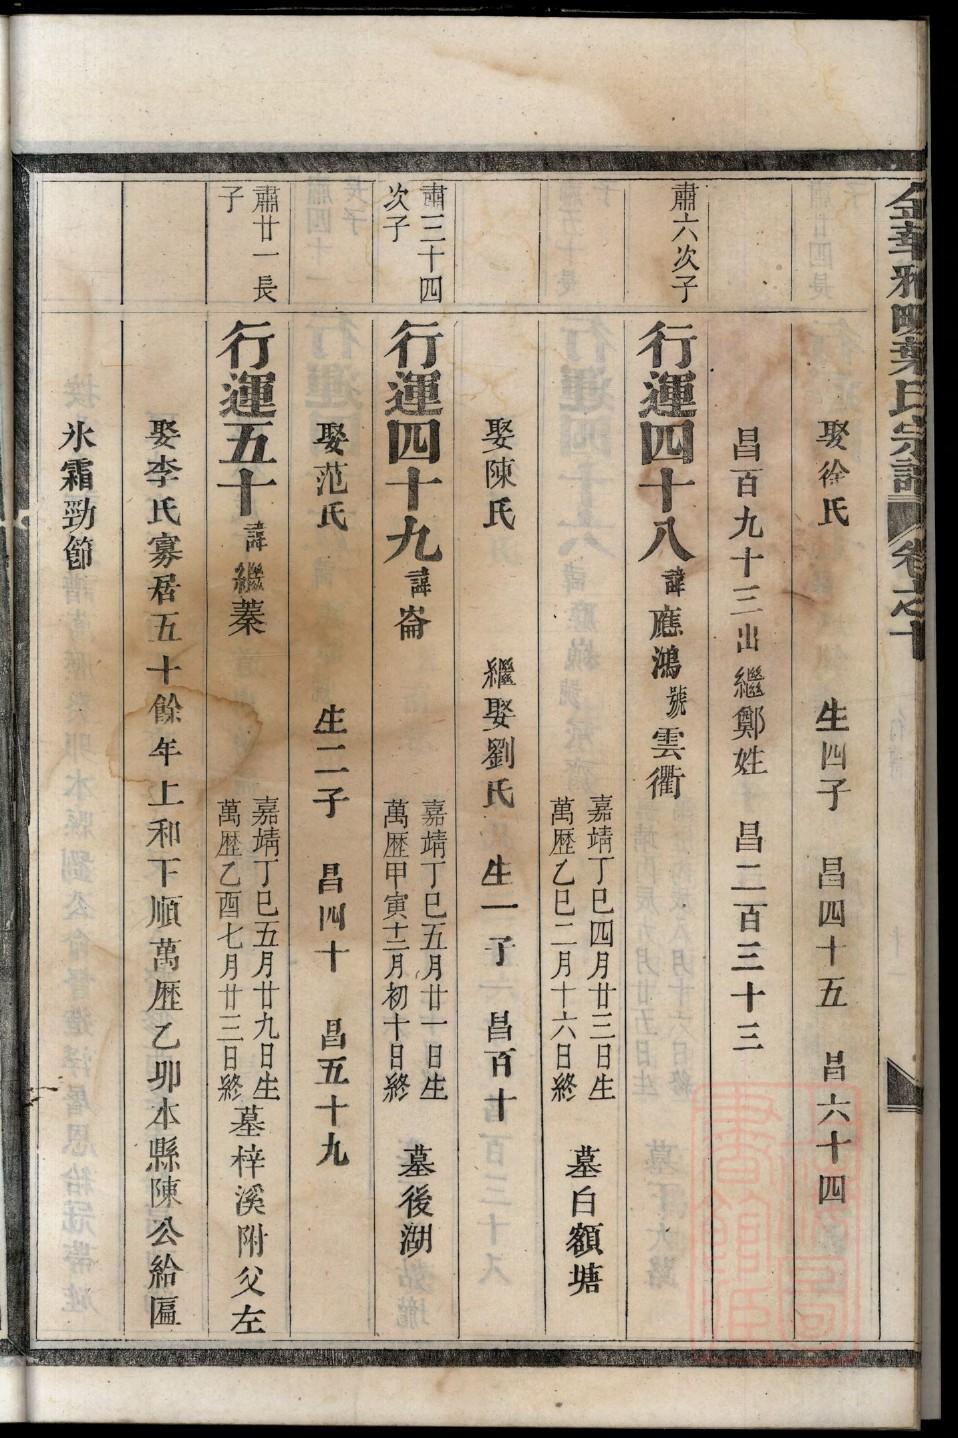 金華雅畈葉氏宗譜 卷之十
娶徐氏 生四子 昌四十五 昌六十四
昌百九十三出繼鄭姓 昌二百三十三
肅六次子
行運四十八 諱應鴻 號雲衢
嘉靖丁巳四月廿三日生
萬歷乙巳二月十六日終
墓白額塘
娶陳氏 繼娶劉氏 生一子 昌百十
肅三十四
次子
行運四十九 諱崙
嘉靖丁巳五月廿一日生
萬歷甲寅十二月初十日終
墓後湖
娶范氏 生二子 昌四十 昌五十九
肅廿一長
子
行運五十 諱繼蓁
嘉靖丁巳五月廿九日生
萬歷乙酉七月廿三日終
墓梓溪附父左
娶李氏寡居五十餘年上和下順萬歷乙卯本縣陳公給匾
氷霜勁節